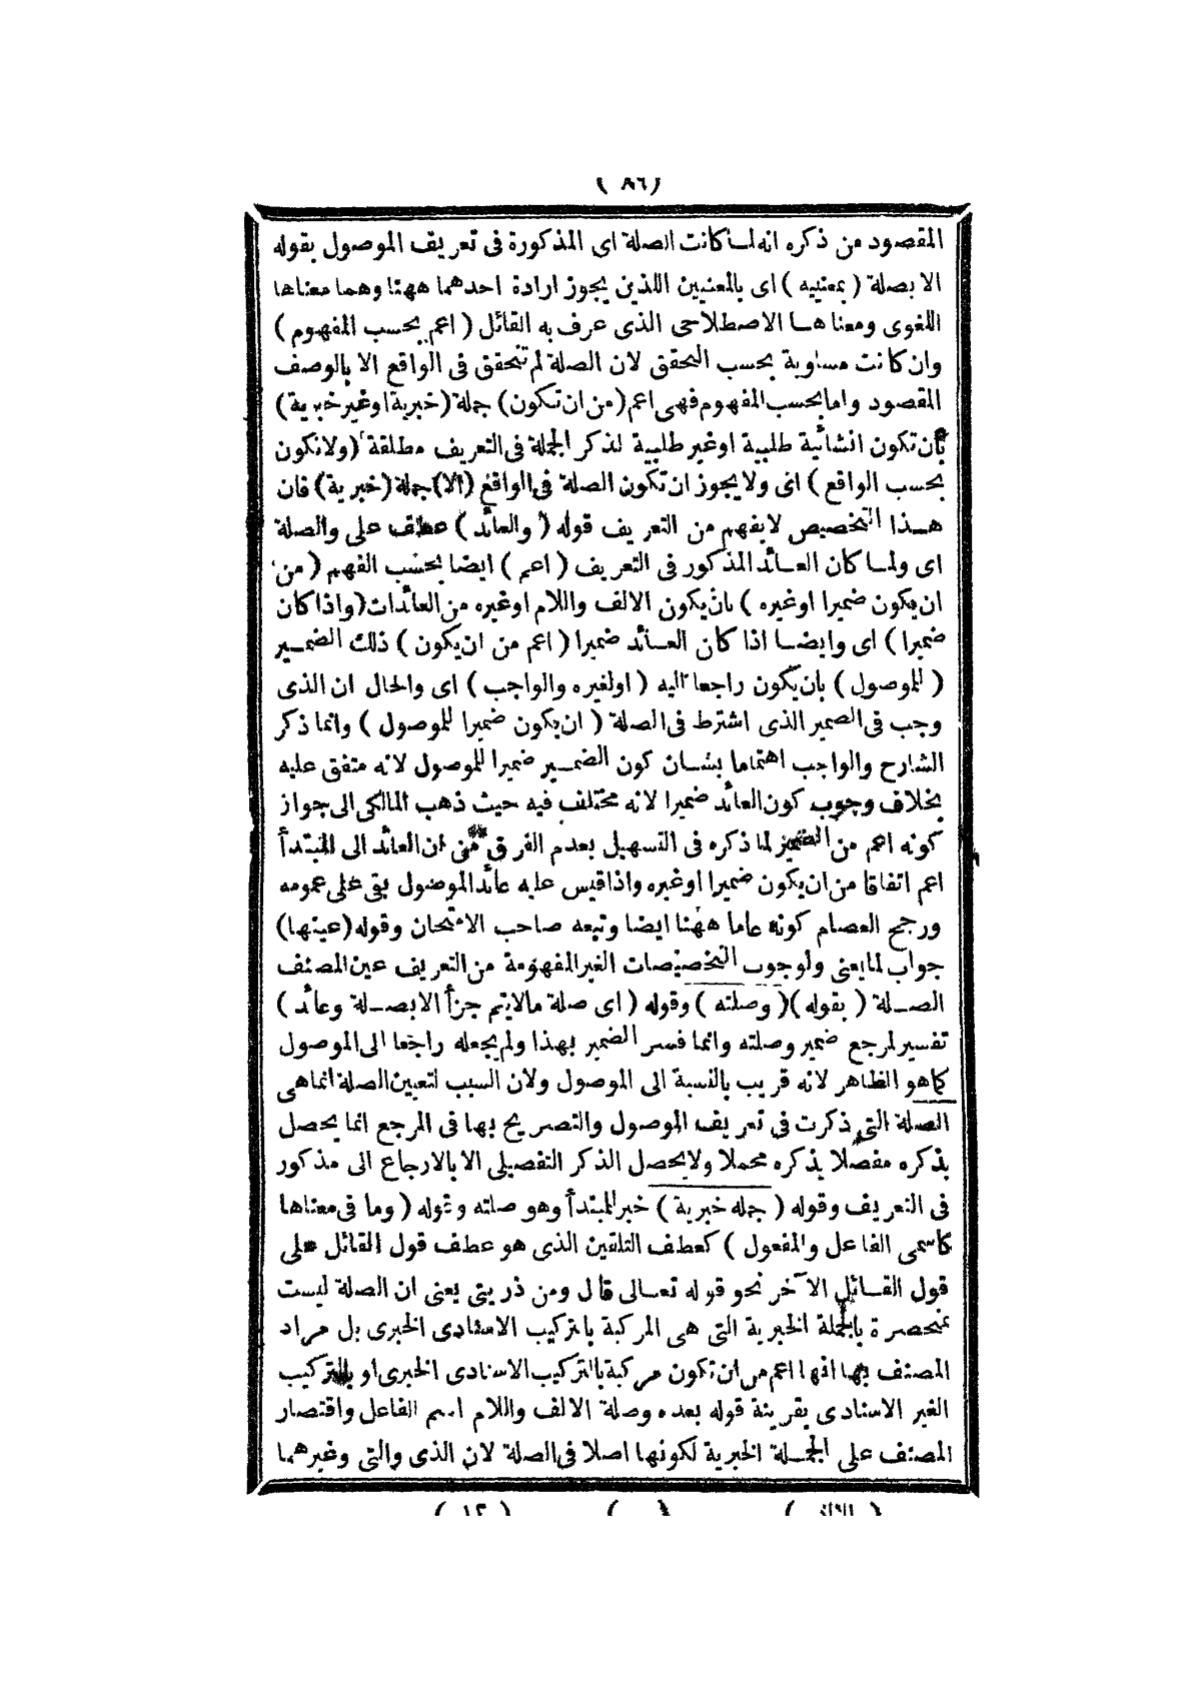 ( ٨٦ )
المقصود من ذكره انه لما كانت الصلة اى المذكورة فى تعريف الموصول بقوله
الا بصلة ( بمعنييه ) اى بالمعنيين اللذين يجوز ارادة احدهما ههنا وهما معناها
اللغوى ومعناها الاصطلاحى الذى عرف به القائل ( اعم بحسب المفهوم )
وان كانت مساوية بحسب التحقق لان الصلة لم تتحقق فى الواقع الا بالوصف
المقصود واما بحسب المفهوم فهى اعم ( من ان تكون ) جملة ( خبرية او غير خبرية )
بأن تكون انشائية طلبية او غير طلبية لذكر الجملة فى التعريف مطلقة ( ولا تكون
بحسب الواقع ) اى ولا يجوز ان تكون الصلة فى الواقع ( الا ) جملة ( خبرية ) فان
هذا التخصيص لا يفهم من التعريف قوله ( والعائد ) عطف على والصلة
اى ولما كان العائد المذكور فى التعريف ( اعم ) ايضا بحسب الفهم ( من
ان يكون ضميرا او غيره ) بان يكون الالف واللام او غيره من العائدات ( واذا كان
ضميرا ) اى وايضا اذا كان العائد ضميرا ( اعم من ان يكون ) ذلك الضمير
( للموصول ) بان يكون راجعا اليه ( او لغيره والواجب ) اى والحال ان الذى
وجب فى الضمير الذى اشترط فى الصلة ( ان يكون ضميرا للموصول ) وانما ذكر
الشارح والواجب اهتماما بشان كون الضمير ضميرا للموصول لانه متفق عليه
بخلاف وجوب كون العائد ضميرا لانه مختلف فيه حيث ذهب المالكى الى جواز
كونه اعم من الضمير لما ذكره فى التسهيل بعدم الفرق من ان العائد الى المبتدأ
اعم اتفاقا من ان يكون ضميرا او غيره واذا قيس عليه عائد الموصول بقى على عمومه
ورجح العصام كونه عاما ههنا ايضا وتبعه صاحب الامتحان وقوله ( عينها )
جواب لما يعنى ولوجوب التخصيصات الغير المفهومة من التعريف عين المصنف
الصلة ( بقوله ) ( وصلته ) وقوله ( اى صلة مالا يتم جزأ الا بصلة وعائد )
تفسير لمرجع ضمير وصلته وانما فسر الضمير بهذا ولم يجعله راجعا الى الموصول
كما هو الظاهر لانه قريب بالنسبة الى الموصول ولان السبب لتعيين الصلة انما هى
الصلة التى ذكرت فى تعريف الموصول والتصريح بها فى المرجع انما يحصل
بذكره مفصلا بذكره مجملا ولا يحصل الذكر التفصيلى الا بالارجاع الى مذكور
فى التعريف وقوله ( جملة خبرية ) خبر المبتدأ وهو صلته وقوله ( وما فى معناها
كاسمى الفاعل والمفعول ) كعطف التلقين الذى هو عطف قول القائل على
قول القائل الآخر نحو قوله تعالى قال ومن ذريتى يعنى ان الصلة ليست
منحصرة بالجملة الخبرية التى هى المركبة بالتركيب الاسنادى الخبرى بل مراد
المصنف بها انها اعم من ان تكون مركبة بالتركيب الاسنادى الخبرى او بالتركيب
الغير الاسنادى بقرينة قوله بعده وصلة الالف واللام اسم الفاعل واقتصار
المصنف على الجملة الخبرية لكونها اصلا فى الصلة لان الذى والتى وغيرهما
( ١٢ )